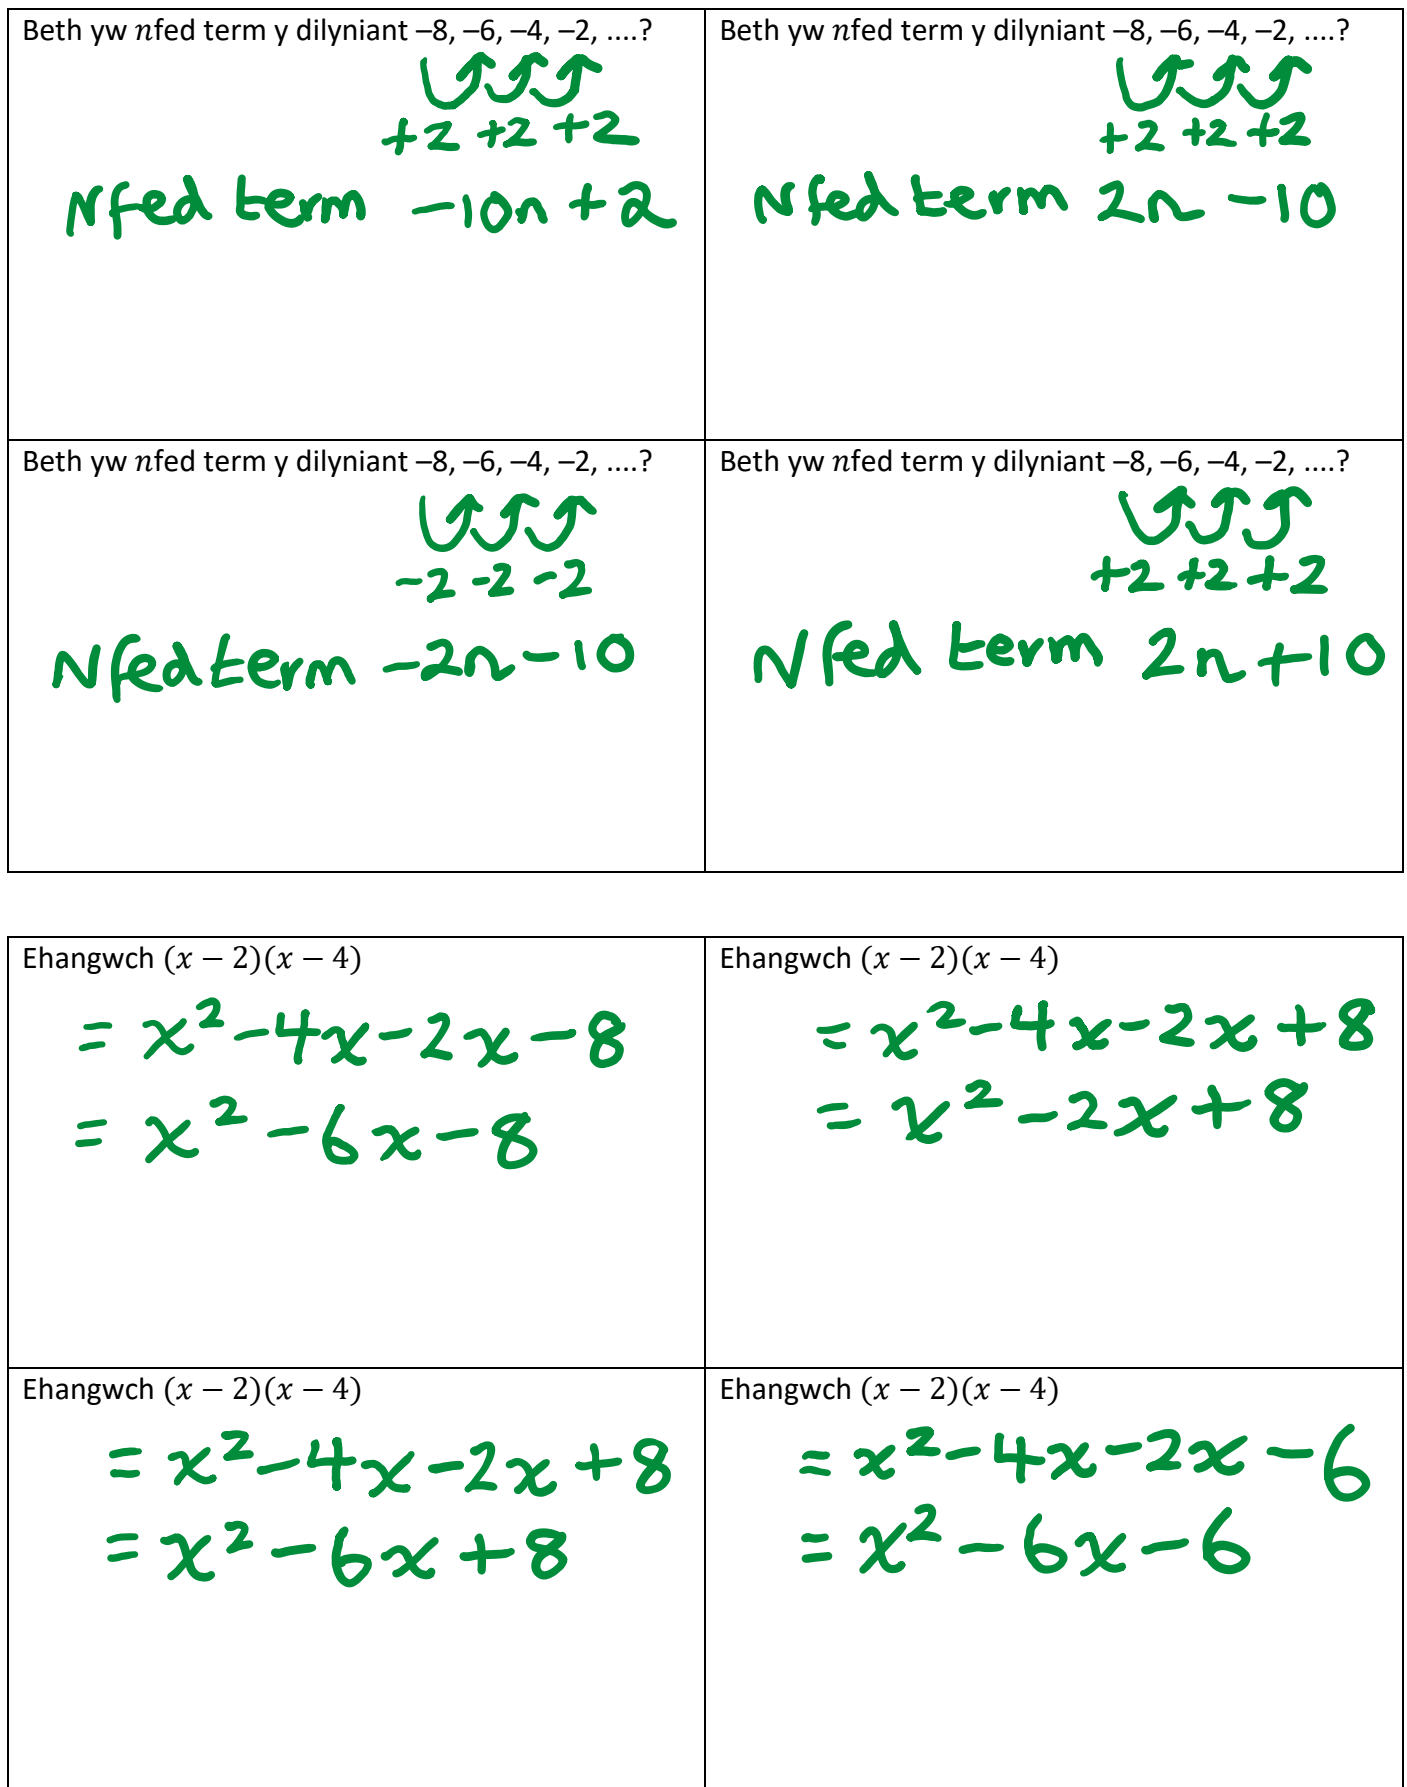 Beth yw nfed term y dilyniant –8, –6, –4, –2, ....?
+2 +2 +2
Nfed term -10n +2
Beth yw nfed term y dilyniant –8, –6, –4, –2, ....?
+2 +2 +2
Nfed term 2n -10
Beth yw nfed term y dilyniant –8, –6, –4, –2, ....?
-2 -2 -2
Nfed term -2n -10
Beth yw nfed term y dilyniant –8, –6, –4, –2, ....?
+2 +2 +2
Nfed term 2n +10
Ehangwch (x − 2)(x − 4)
= x² -4x -2x -8
= x² -6x -8
Ehangwch (x − 2)(x − 4)
= x² -4x -2x +8
= x² -2x +8
Ehangwch (x − 2)(x − 4)
= x² -4x -2x +8
= x² -6x +8
Ehangwch (x − 2)(x − 4)
= x² -4x -2x -6
= x² -6x -6